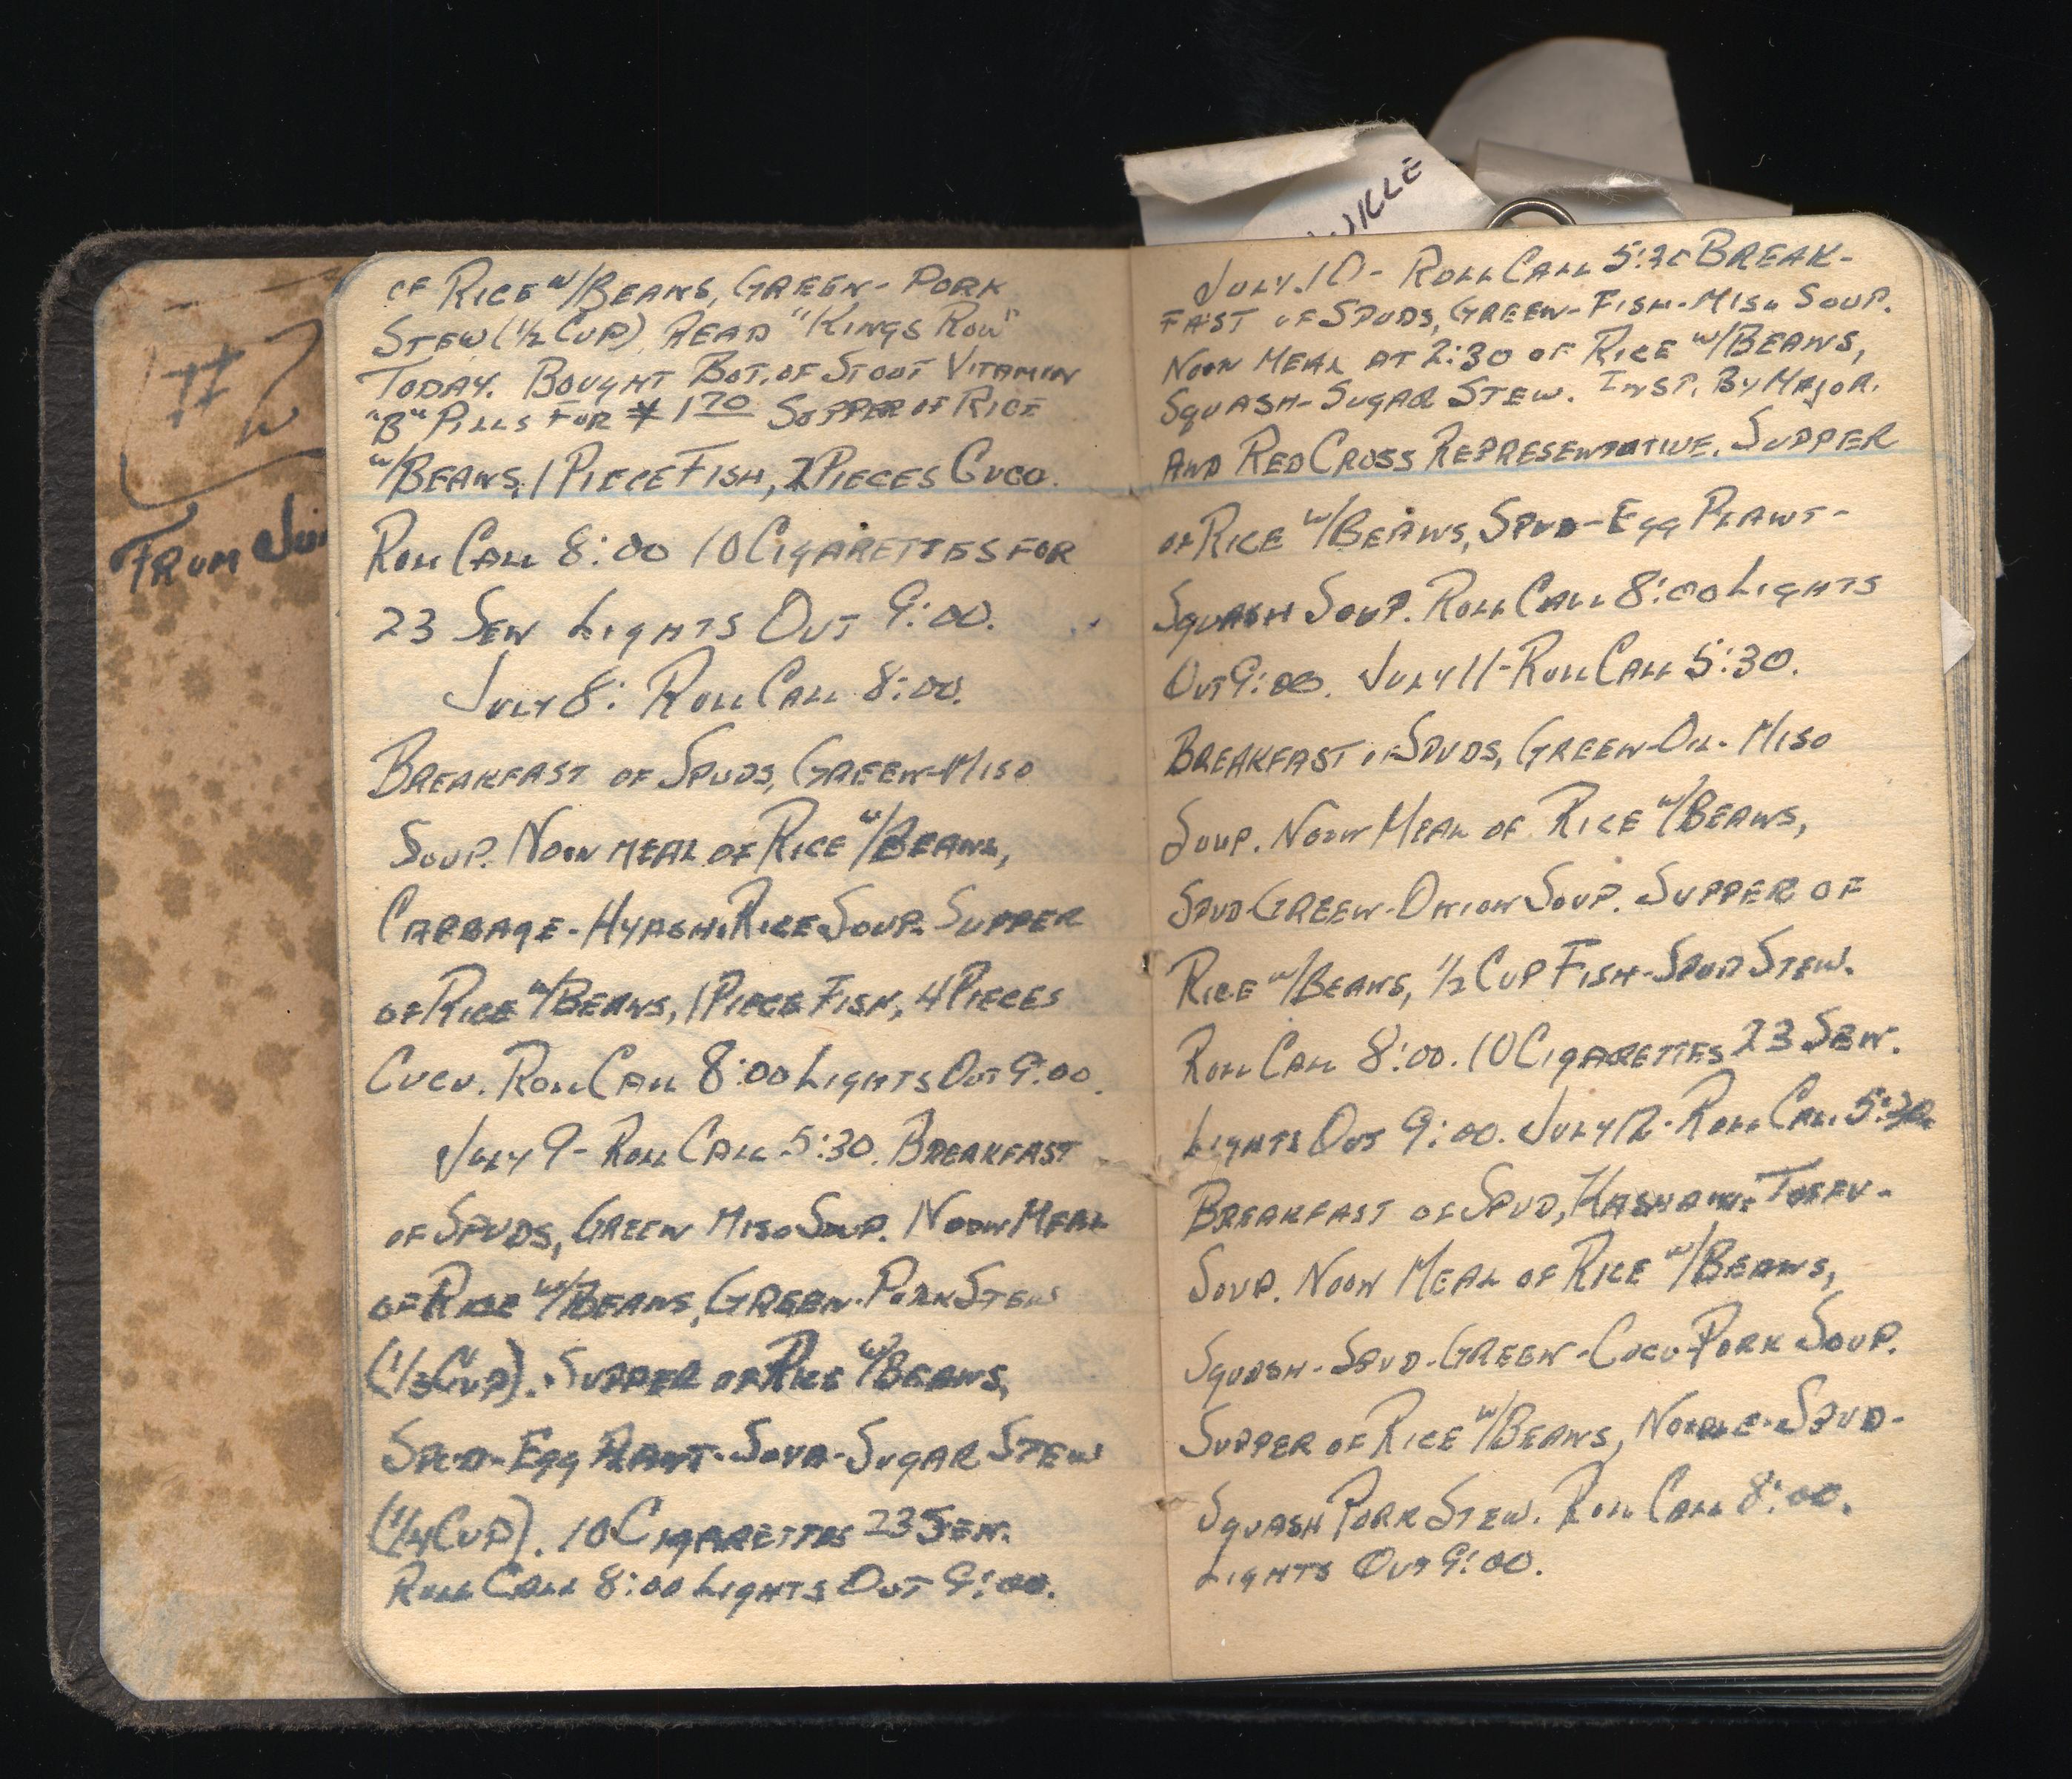 #2
From
VILLE
of Rice w/Beans, Green-Pork
Stew (1/2 Cup). Read "Kings Row"
Today. Bought Bot. of Stout Vitamin
"B" Pills for ¥ 1 70 Supper of Rice
w/Beans, 1 Piece Fish, 2 Pieces Cucu.
Roll Call 8:00 10 Cigarettes for
23 Sen Lights Out 9:00.
July 8: Roll Call 8:00.
Breakfast of Spuds, Green-Miso
Soup. Noon Meal of Rice w/Beans,
Cabbage- Rice Soup. Supper
of Rice w/Beans, 1 Piece Fish, 4 Pieces
Cucu. Roll Call 8:00 Lights Out 9:00.
July 9- Roll Call 5:30. Breakfast
of Spuds, Green Miso Soup. Noon Meal
of Rice w/Beans, Green-Pork Stew
(1/3 Cup). Supper of Rice w/Beans,
Spud-Egg Plant- -Sugar Stew
(1/4 Cup). 10 Cigarettes 23 Sen.
Roll Call 8:00 Lights Out 9:00.
July.10- Roll Call 5:30 Break-
fast of Spuds, Green-Fish-Miso Soup.
Noon Meal at 2:30 of Rice w/Beans,
Squash-Sugar Stew. Insp. By Major.
And Red Cross Representative. Supper
of Rice w/Beans, Spud-Egg Plant-
Squash Soup. Roll Call 8:00 Lights
Out 9:00. July 11-Roll Call 5:30.
Breakfast of Spuds, Green-Oil-Miso
Soup. Noon Meal of Rice w/Beans,
Spud-Green-Onion Soup. Supper of
Rice w/Beans, 1/2 Cup Fish-Spud Stew.
Roll Call 8:00. 10 Cigarettes 23 Sen.
Lights Out 9:00. July 12-Roll Call 5:30
Breakfast of Spud, Tofu-
Soup. Noon Meal of Rice w/Beans,
Squash-Spud-Green-Cucu-Pork Soup.
Supper of Rice w/Beans, Noodle-Spud-
Squash Pork Stew. Roll Call 8:00.
Lights Out 9:00.